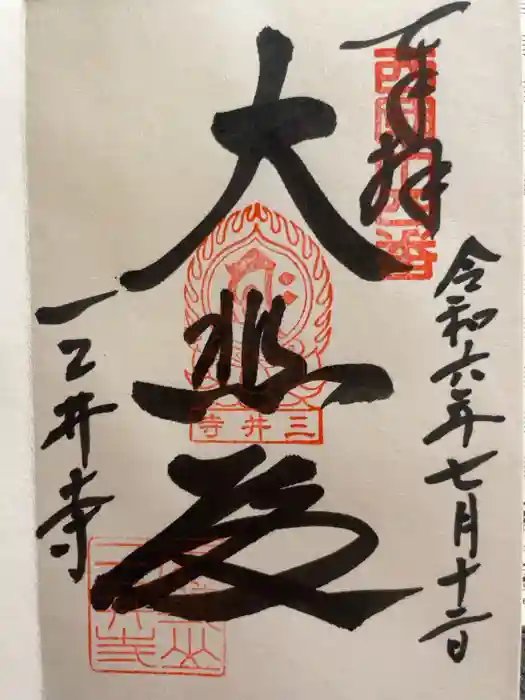 奉拝
西國十四番
令和六年七月十三日
大悲殿
三井寺
三井寺